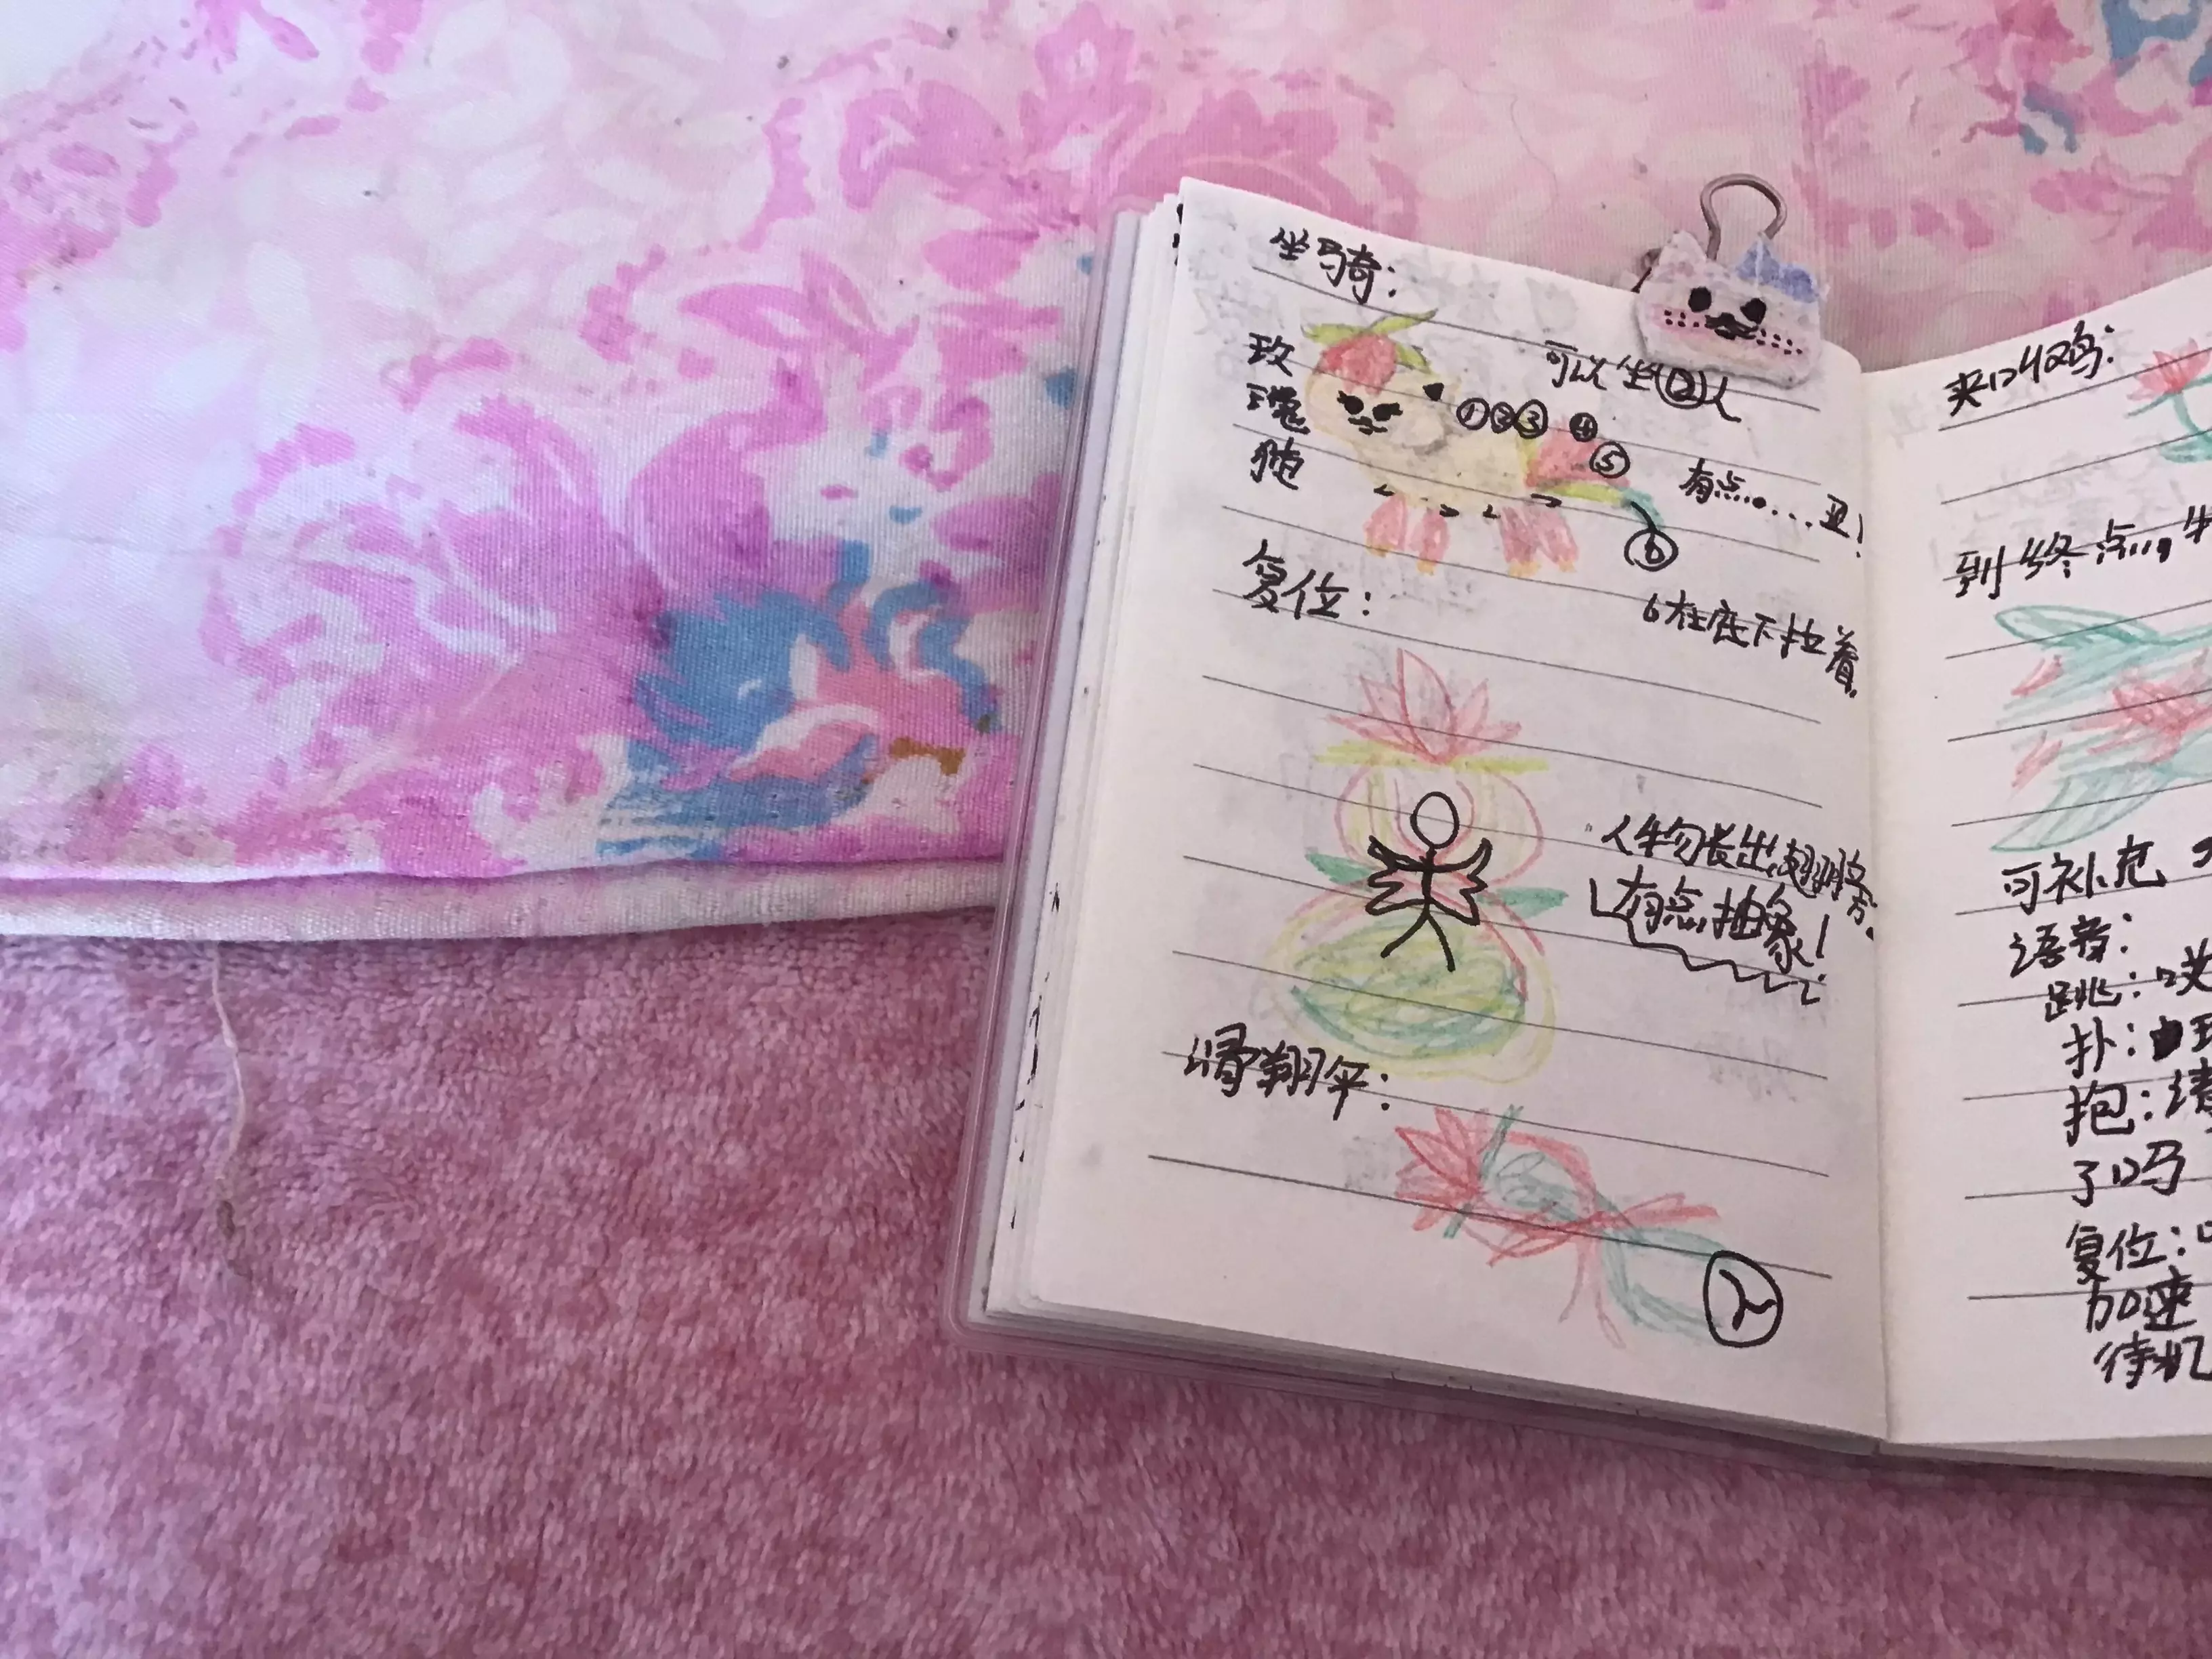 坐马奇:
玫瑰狍
可以坐⑫人
①②③④
⑤
⑥
有点......丑!
6在底下拉着.
复位:
人物长出翅膀.
有点抽象!
滑翔伞:
2
夹口收鸡:
到终点...,
可补充
语音:
跳:哎
扑:
抱:请
了吗
复位:
加速
待机